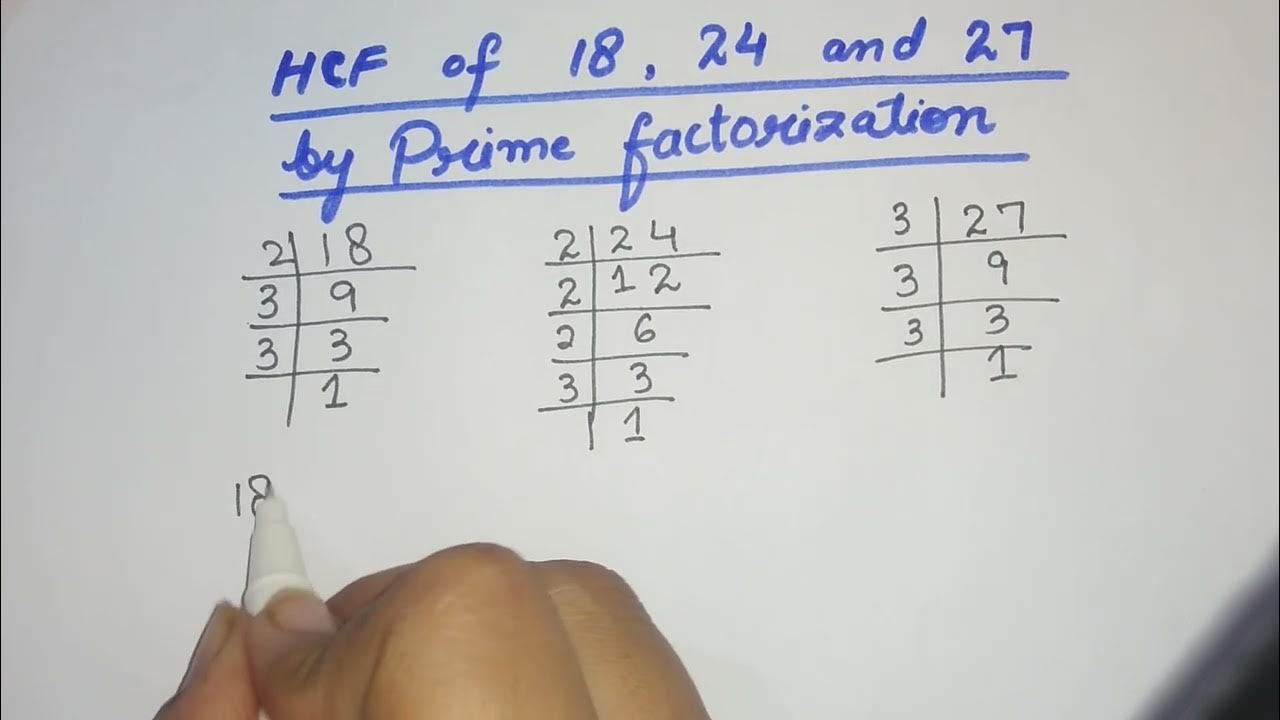 HCF of 18, 24 and 27
by Prime factorization
2 | 18
3 | 9
3 | 3
1
2 | 24
2 | 12
2 | 6
3 | 3
1
3 | 27
3 | 9
3 | 3
1
18